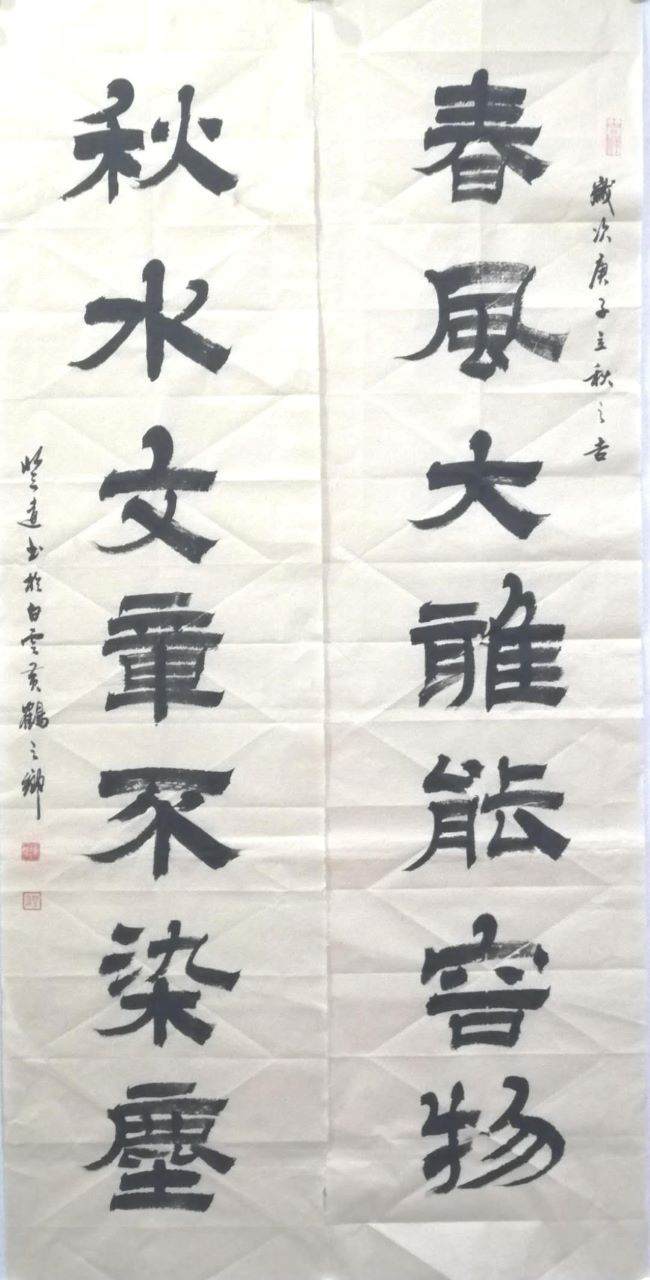 歲次庚子立秋之吉
春風大雅能容物
秋水文章不染塵
书於白雲黄鶴之鄉